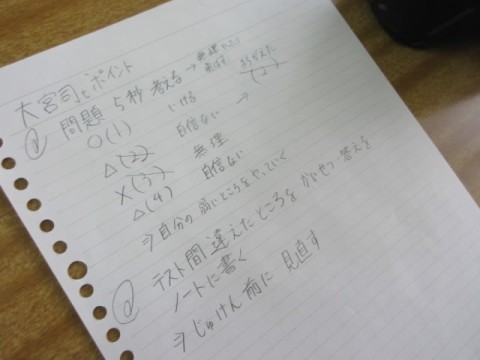 大宮司とポイント
① 問題 5秒 考える → 無理
○(1) いける
△(2) 自信ない →
×(3) 無理
△(4) 自信ない
⇒自分の弱いところをやっていく
② テスト間違えたところを かいせつ 答えを
ノートに書く
⇒じゅけん前に 見直す